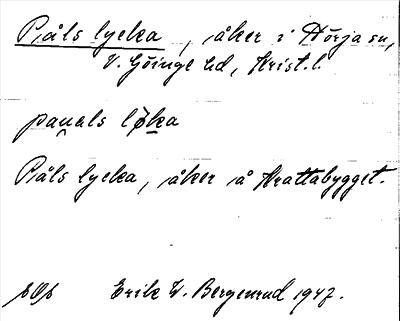 Påls lycka, åker i Hörja sn,
V. Göinge hd, Krist. l.
pau̯als lø̱ka
Påls lycka, åker å Krattabygget.
Erik W. Bergenrud 1947.